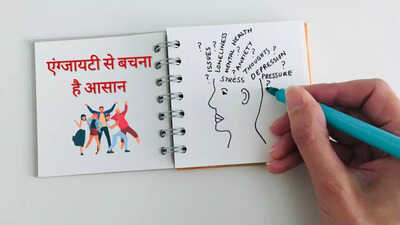 एंग्जायटी से बचना
है आसान
? ? ? ? ? ? ? ?
ISSUES
LONELINESS
MENTAL HEALTH
ANXIETY
THOUGHTS
DEPRESSION
STRESS
PRESSURE
?